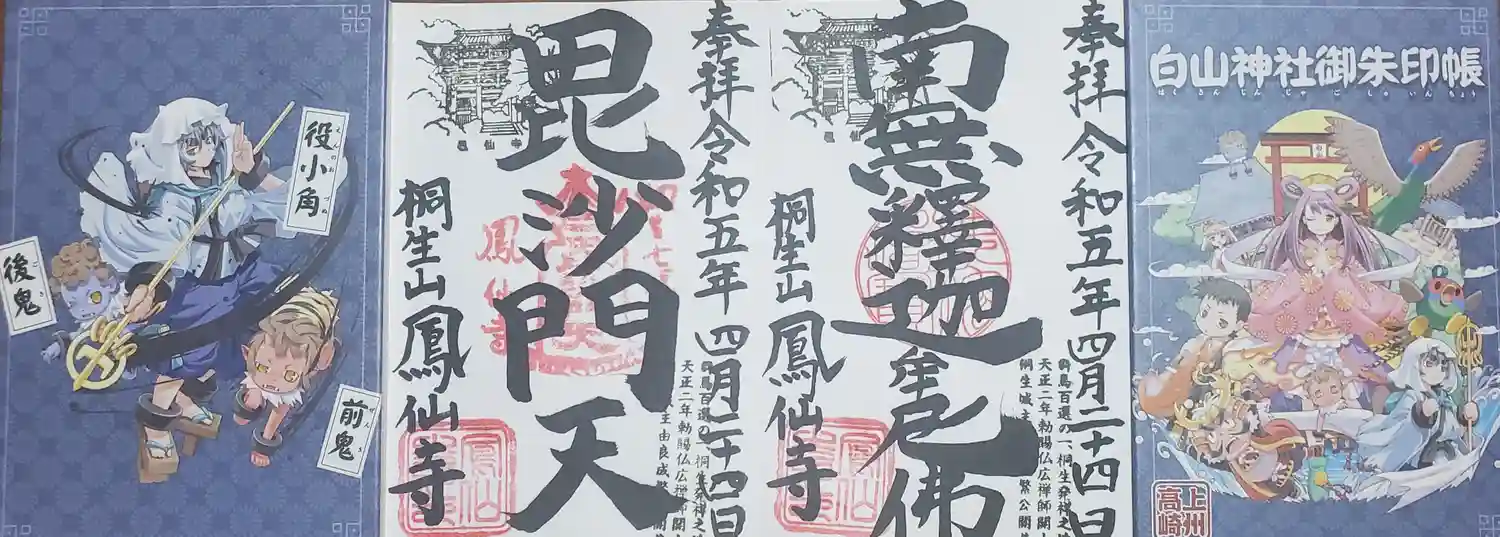 白山神社御朱印帳
はくさんじんじゃごしゅいんちょう
上州
高崎
奉拝 令和五年 四月二十四日
南無釋迦牟尼佛
群馬百選の一、桐生発祥之地
天正二年勅賜仏広禅師開
桐生城主
繁公開
桐生山 鳳仙寺
奉拝 令和五年 四月二十四日
毘沙門天
群馬百選の一、桐生発祥之地
天正二年勅賜仏広禅師開
主由良成繁公開
鳳仙寺
桐生山 鳳仙寺
役小角
えんのおづぬ
後鬼
ごき
前鬼
ぜんき